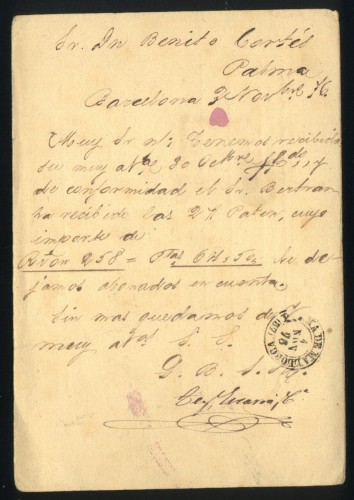 Sr. Dn Benito Cortés
Palma
Barcelona 3 Novbre 76.
Muy Sr nt: Tenemos recibida
su muy ata 30 Octbre ppdo, y
de conformidad el Sr. Bertran
ha recibido las 2 Paten, cuyo
importe de
Rvon 258 = Ptas 64,50 le de-
jamos abonados en cuenta.
Sin mas quedamos de V.
muy atos S. S.
Q. B. S. M.
PALMA DE MALLORCA
4 NOV 76